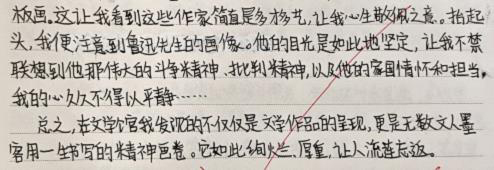 板画。这让我看到这些作家简直是多才多艺,让我心生敬佩之意。抬起
头,我便注意到鲁迅先生的画像。他的目光是如此地坚定,让我不禁
联想到他那伟大的斗争精神、批判精神,以及他的家国情怀和担当,
我的心久久不得以平静……
总之,在文学馆我发现的不仅仅是文学作品的呈现,更是无数文人墨
客用一生书写的精神画卷。它如此绚烂、厚重,让人流连忘返。